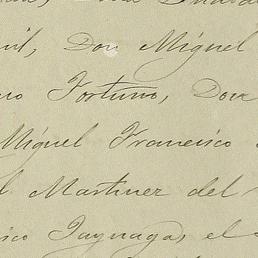 uil, Don Miguel
Fortuno, Don
Miguel Francisco
l Martinez del
sico Jaynaga, el